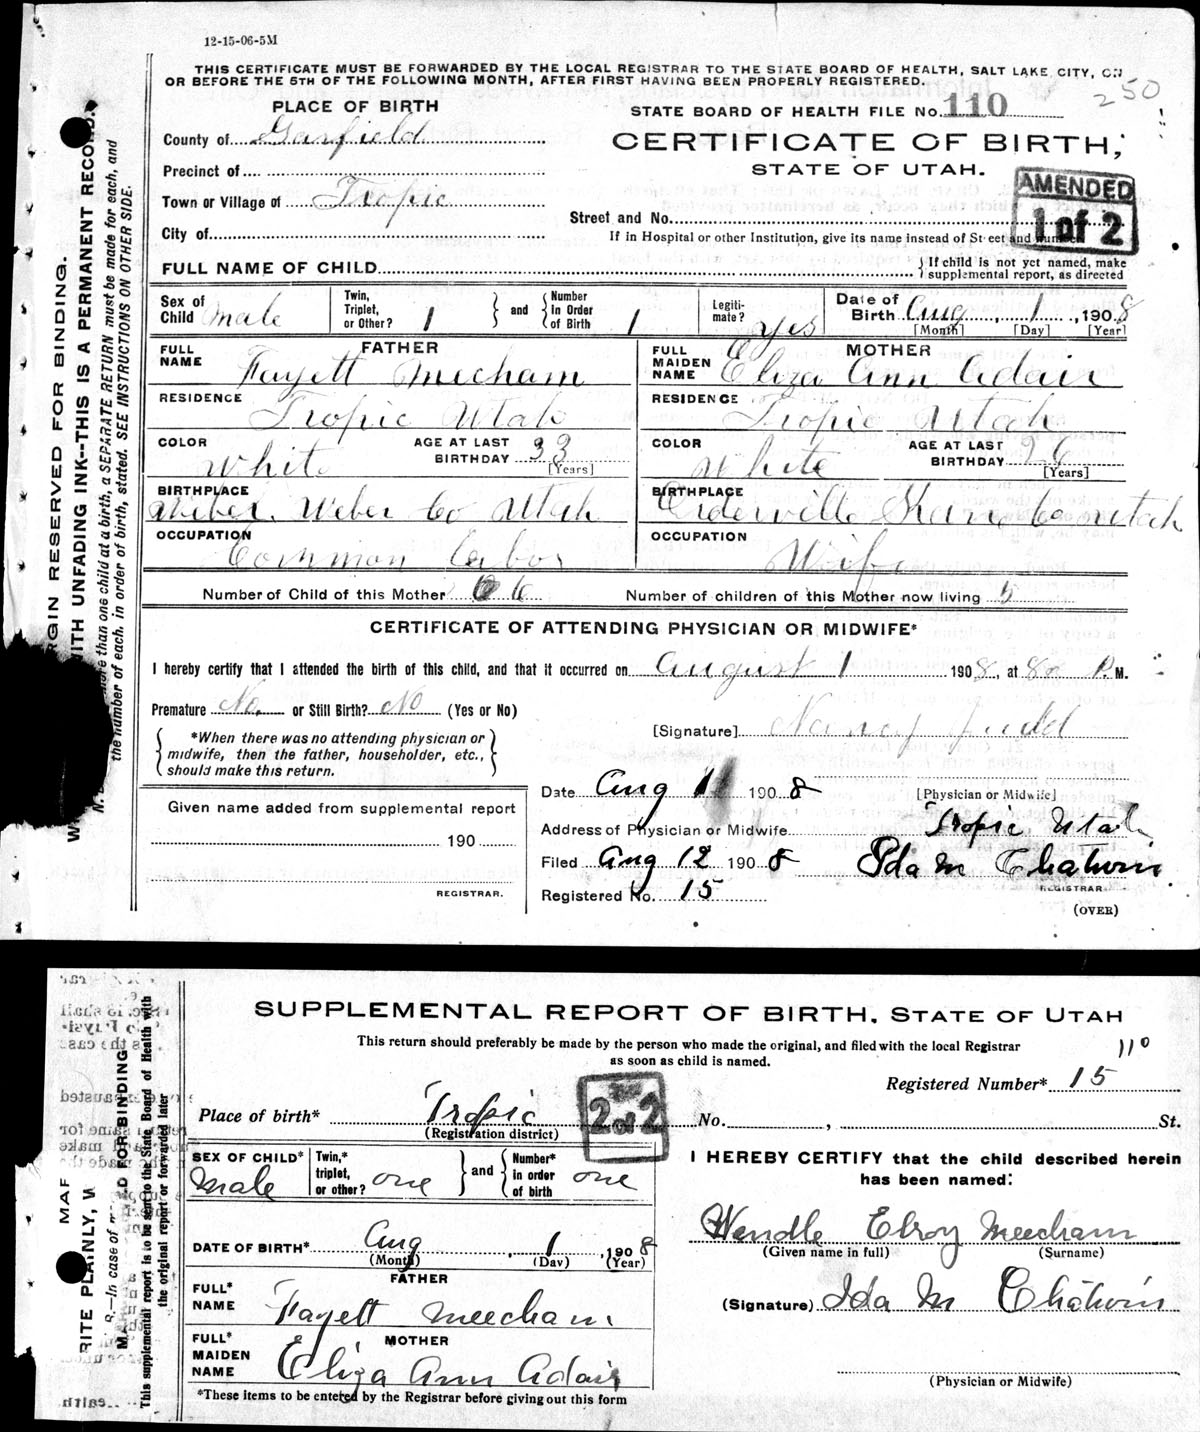 12-15-06-5M
THIS CERTIFICATE MUST BE FORWARDED BY THE LOCAL REGISTRAR TO THE STATE BOARD OF HEALTH, SALT LAKE CITY, ON
OR BEFORE THE 5TH OF THE FOLLOWING MONTH, AFTER FIRST HAVING BEEN PROPERLY REGISTERED.
250
PLACE OF BIRTH
STATE BOARD OF HEALTH FILE No. 110
County of Garfield
CERTIFICATE OF BIRTH,
STATE OF UTAH.
Precinct of
AMENDED
1 of 2
Town or Village of Tropic
Street and No.
City of
If in Hospital or other Institution, give its name instead of Street and number
FULL NAME OF CHILD
If child is not yet named, make
supplemental report, as directed
Sex of Child Male
Twin, Triplet, or Other? 1 and Number In Order of Birth 1
Legitimate? yes
Date of Birth Aug 1, 1908
[Month] [Day] [Year]
FATHER
FULL NAME Fayett Mecham
MOTHER
FULL MAIDEN NAME Eliza Ann Adair
RESIDENCE Tropic Utah
RESIDENCE Tropic Utah
COLOR White AGE AT LAST BIRTHDAY 33 [Years]
COLOR White AGE AT LAST BIRTHDAY 26 [Years]
BIRTHPLACE Weber Co Utah
BIRTHPLACE Orderville Co Utah
OCCUPATION Common Labor
OCCUPATION Wife
Number of Child of this Mother 6
Number of children of this Mother now living 5
CERTIFICATE OF ATTENDING PHYSICIAN OR MIDWIFE*
I hereby certify that I attended the birth of this child, and that it occurred on August 1 1908, at P. M.
Premature No. or Still Birth? No (Yes or No)
*When there was no attending physician or
midwife, then the father, householder, etc.,
should make this return.
[Signature] Nancy Judd
Date Aug 11 1908
[Physician or Midwife]
Given name added from supplemental report
190
REGISTRAR.
Address of Physician or Midwife Tropic Utah
Filed Aug 12 1908 Ida M Chatwin
REGISTRAR
Registered No. 15
(OVER)
MARGIN RESERVED FOR BINDING.
WITH UNFADING INK--THIS IS A PERMANENT RECORD.
more than one child at a birth, a SEPARATE RETURN must be made for each, and
the number of each, in order of birth, stated. SEE INSTRUCTIONS ON OTHER SIDE.
SUPPLEMENTAL REPORT OF BIRTH, STATE OF UTAH
This return should preferably be made by the person who made the original, and filed with the local Registrar
as soon as child is named.
110
Registered Number* 15
Place of birth* Tropic
(Registration district)
2 of 2
No. , St.
SEX OF CHILD* Male
Twin,* triplet, or other? one and Number* in order of birth one
I HEREBY CERTIFY that the child described herein
has been named:
Wendle Elroy Meecham
(Given name in full) (Surname)
DATE OF BIRTH* Aug , 1 , 1908
(Month) (Day) (Year)
FATHER
FULL* NAME Fayett Meecham
(Signature) Ida M Chatwin
MOTHER
FULL* MAIDEN NAME Eliza Ann Adair
(Physician or Midwife)
*These items to be entered by the Registrar before giving out this form
This supplemental report is to be sent to the State Board of Health with
the original report or forwarded later